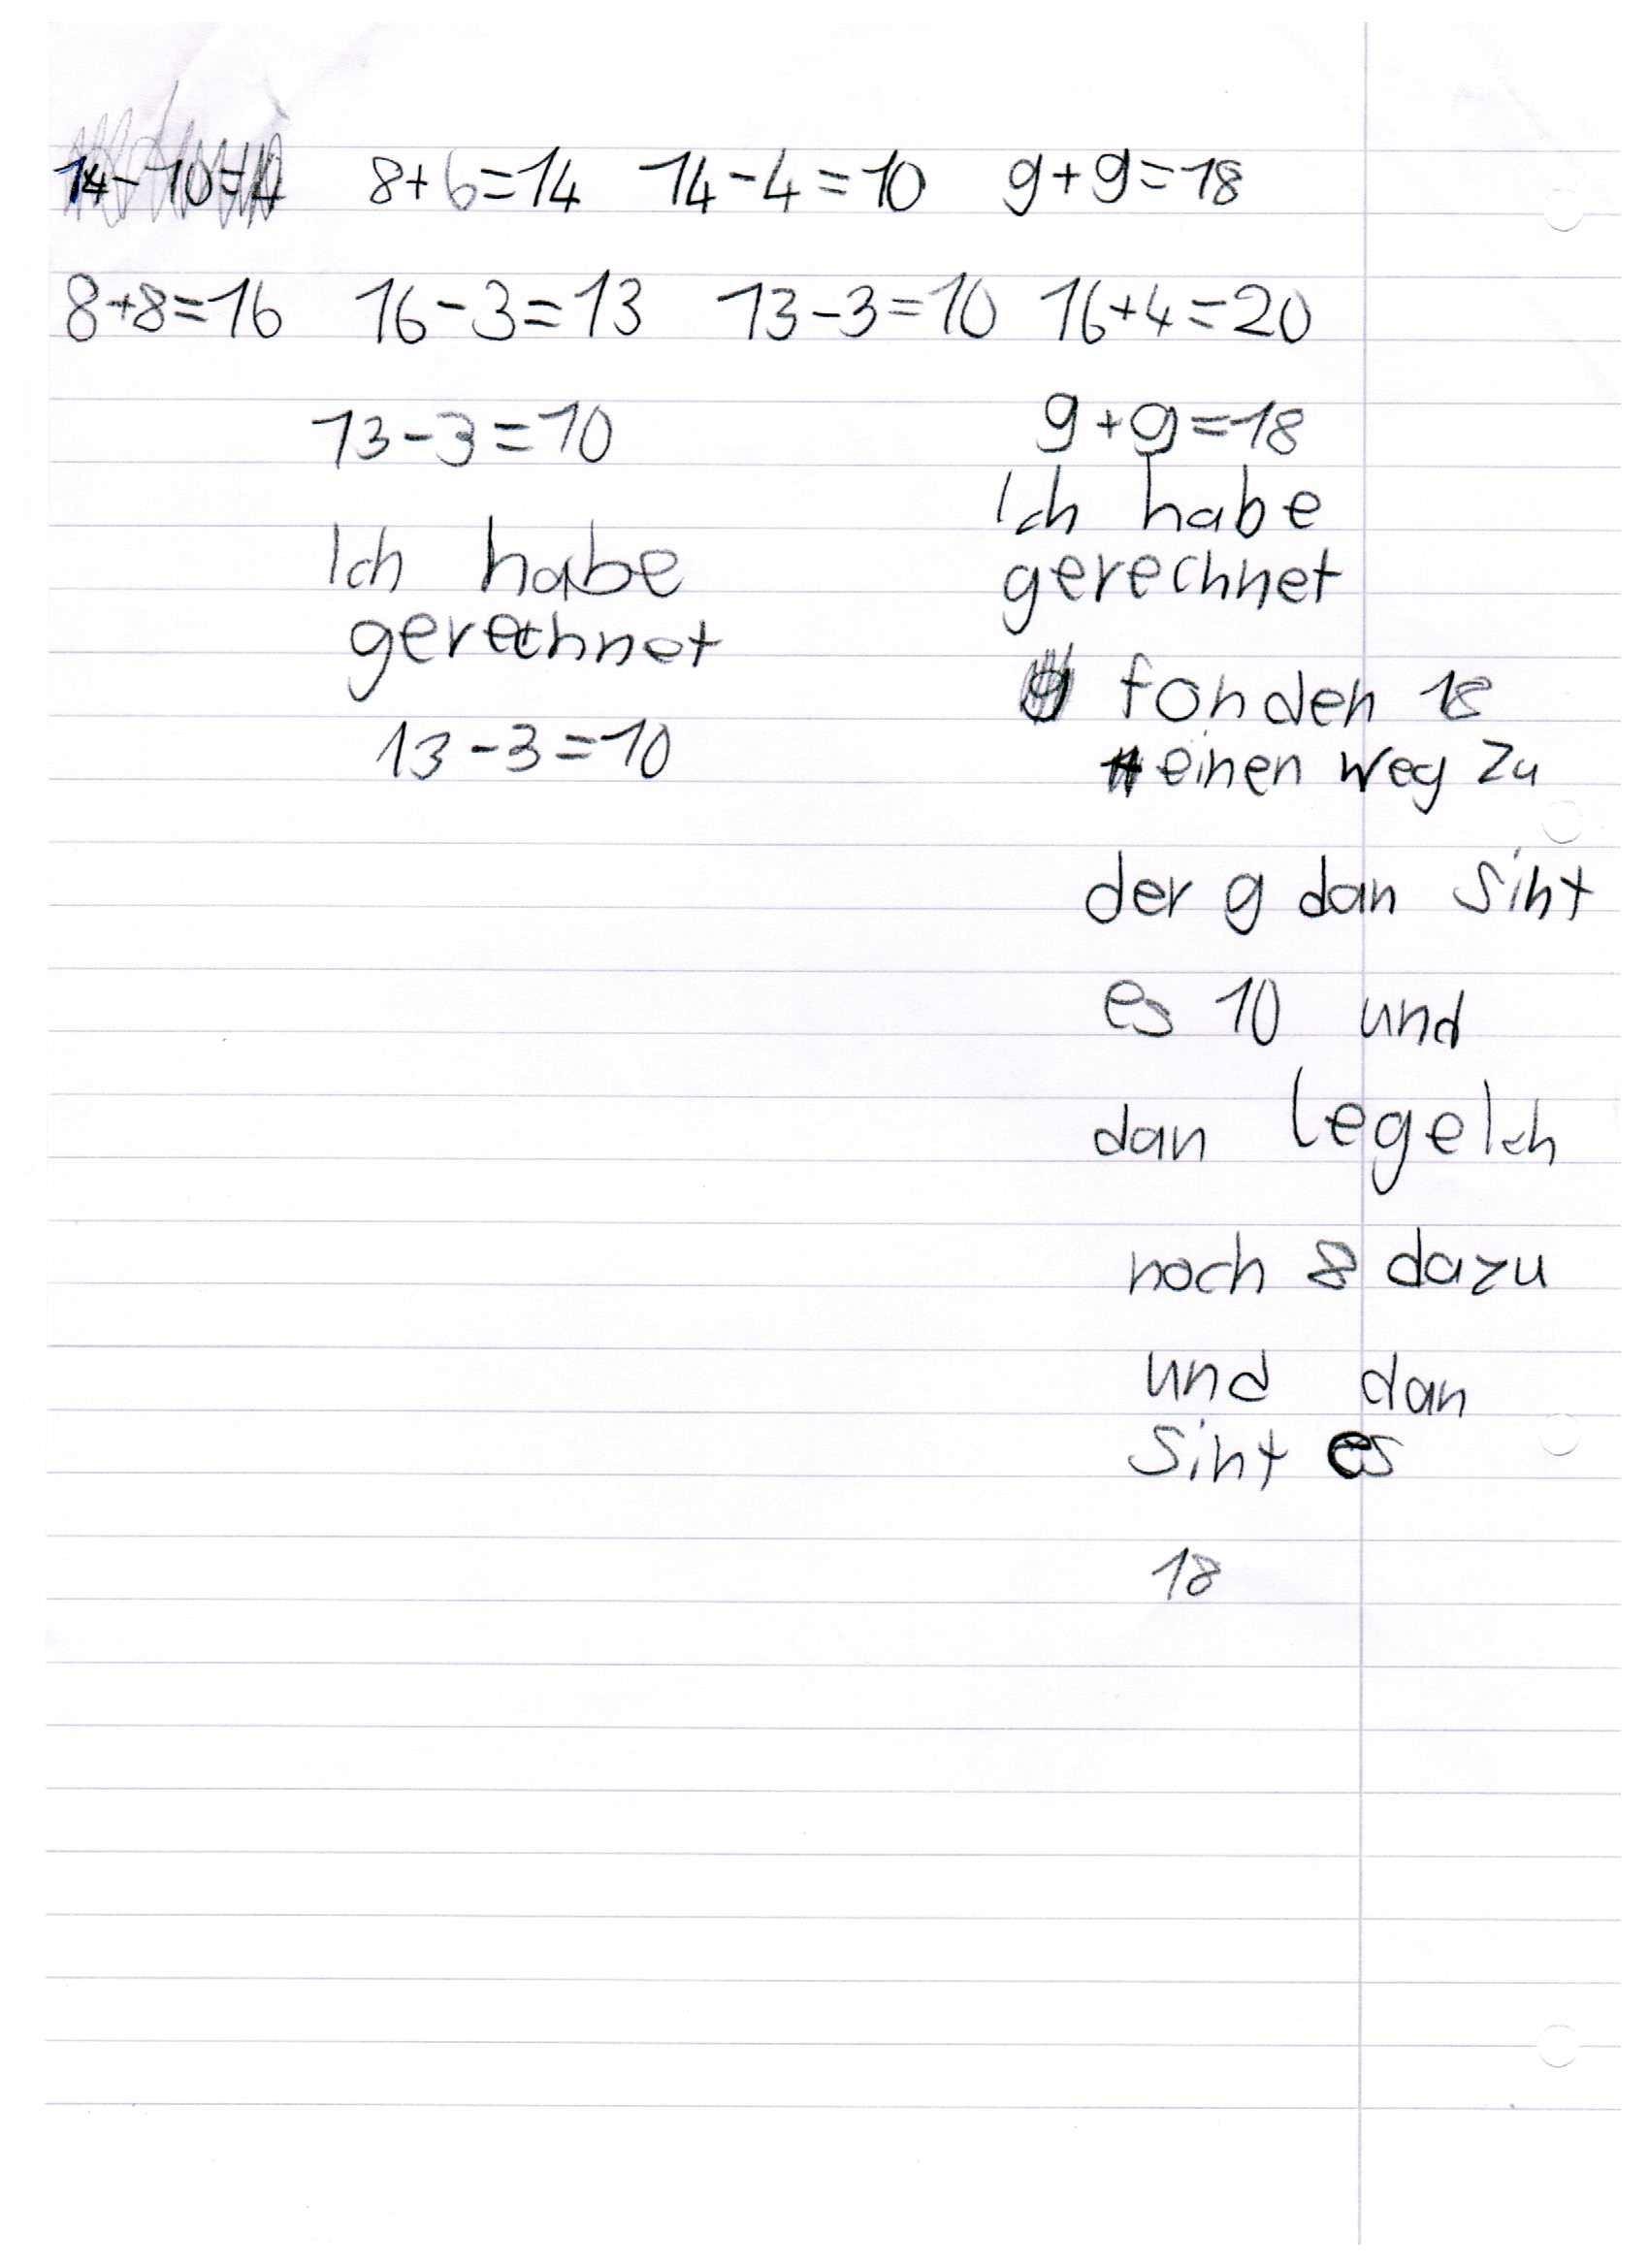 14-10=4 8+6=14 14-4=10 9+9=18
8+8=16 16-3=13 13-3=10 16+4=20
13-3=10
Ich habe
gerechnet
13-3=10
9+9=18
Ich habe
gerechnet
fonden 18
einen weg zu
der 9 dan sint
es 10 und
dan legeIch
noch 8 dazu
und dan
sint es
18